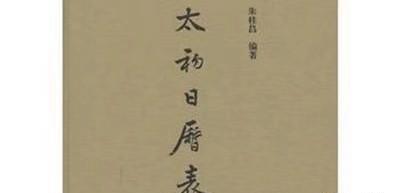 朱桂昌 编著
太初日曆表